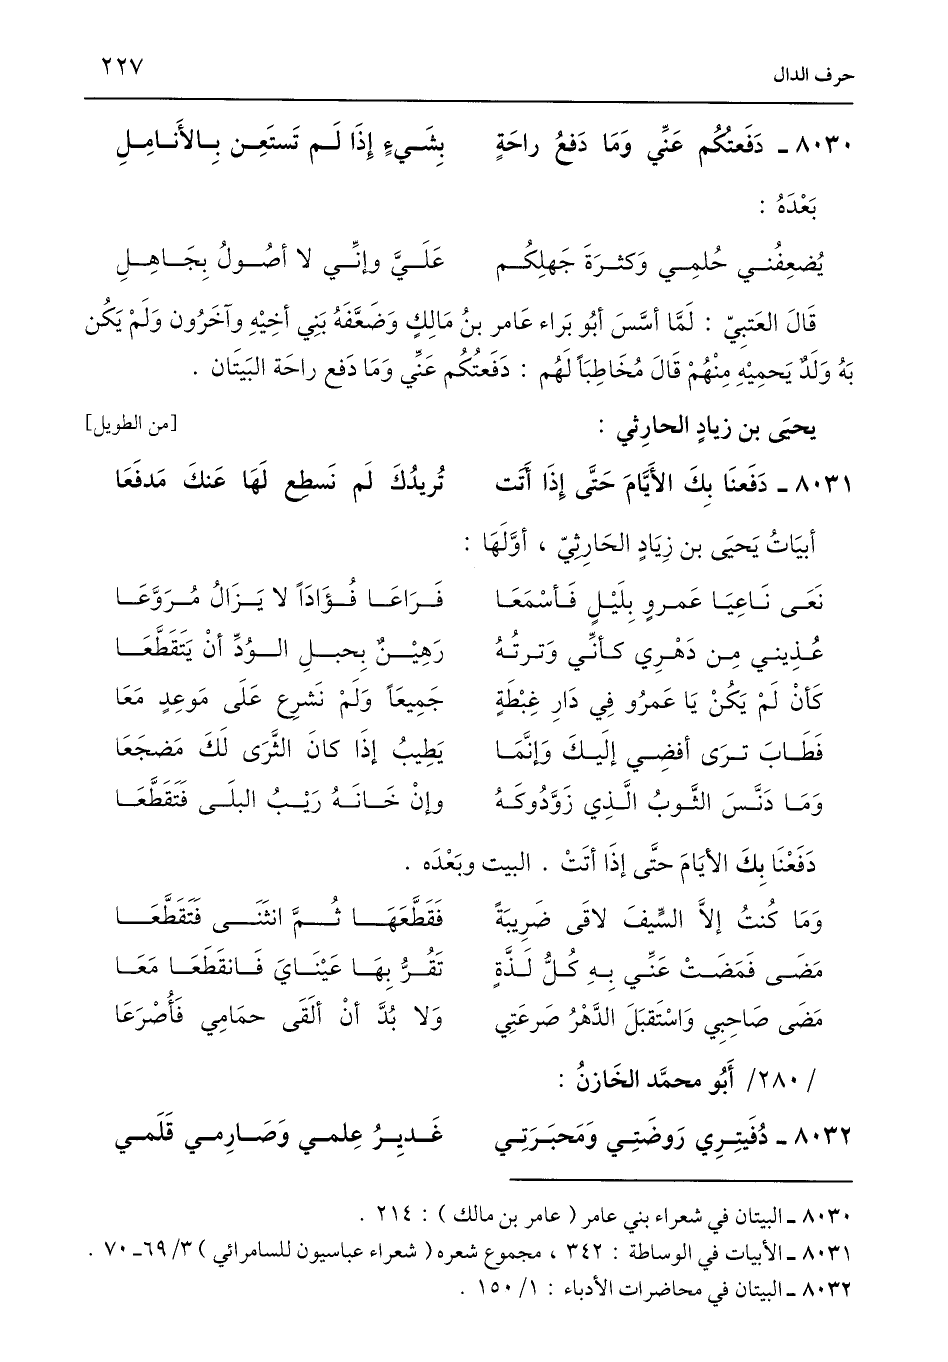 حرف الدال ٢٢٧
٨٠٣٠ - دَفَعتُكُم عَنِّي وَمَا دَفعُ راحَةٍ بِشَيءٍ إِذَا لَم تَستَعِن بِالأَنامِلِ
بَعْدَهُ :
يُضعِفُني حُلمِي وَكثرَةَ جَهلِكُم عَلَيَّ وإنِّي لا أصُولُ بِجَاهِلِ
قَالَ العَتبِيّ : لَمَّا أسَّسَ أَبُو بَراء عَامر بنُ مَالكٍ وَضَعَّفَهُ بَنِي أخِيْهِ وآخَرُون وَلَمْ يَكُن
بَهُ وَلَدٌ يَحمِيْهِ مِنْهُمْ قَالَ مُخَاطِبَاً لَهُم : دَفَعتُكُم عَنِّي وَمَا دَفع راحَة البَيتَان .
يحيَى بن زيادٍ الحارِثي : [من الطويل]
٨٠٣١ - دَفَعنَا بِكَ الأَيَّامَ حَتَّى إِذَا أَتَت تُريدُكَ لَم نَسطِع لَهَا عَنكَ مَدفَعَا
أبيَاتُ يَحيَى بن زِيَادٍ الحَارِثِيّ ، أوَّلهَا :
نَعَى نَاعِيَا عَمروٍ بِلَيْلٍ فَأسْمَعَا فَراعَا فُؤَادَاً لا يَزَالُ مُرَوَّعَا
عُذيني مِن دَهْرِي كأنِّي وَترتهُ رَهِيْنٌ بِحبلِ الوُدِّ أنْ يَتَقَطَّعَا
كَأنْ لَمْ يَكُنْ يَا عَمرُو فِي دَارِ غِبْطَةٍ جَمِيعَاً وَلَمْ نَشرِع عَلَى مَوعِدٍ مَعَا
فَطَابَ ترَى أفضِي إلَيكَ وَإنَّمَا يَطِيبُ إذَا كانَ الثَّرَى لَكَ مَضجَعَا
وَمَا دَنَّسَ الثَّوبُ الَّذِي زَوَّدُوكَهُ وإنْ خَانَهُ رَيْبُ البلَى فَتَقَطَّعَا
دَفَعْنَا بِكَ الأيَامَ حتَّى إذَا أتَتْ . البيت وبَعْدَه .
وَمَا كُنتُ إلاَّ السَّيفَ لاقَى ضَرِيبَةً فَقَطَّعَهَا ثُمَّ انثَنَى فَتَقَطَّعَا
مَضَى فَمَضَتْ عَنِّي بِهِ كُلُّ لَذَّةٍ تَقُرُّ بِهَا عَيْنَايَ فَانقَطَعَا مَعَا
مَضَى صَاحِبِي وَاسْتَقبَلَ الدَّهْرُ صَرعَتِي وَلا بُدَّ أنْ ألقَى حمَامِي فَأُصْرَعَا
/ ٢٨٠/ أَبُو محمَّد الخَازنُ :
٨٠٣٢ - دُفَيتِري رَوضَتِي وَمَحبَرَتِي غَديرُ عِلمِي وَصَارِمِي قَلَمي
٨٠٣٠ - البيتان في شعراء بني عامر ( عامر بن مالك ) : ٢١٤ .
٨٠٣١ - الأبيات في الوساطة : ٣٤٢ ، مجموع شعره ( شعراء عباسيون للسامرائي ) ٣/ ٦٩-٧٠ .
٨٠٣٢ - البيتان في محاضرات الأدباء : ١/ ١٥٠ .